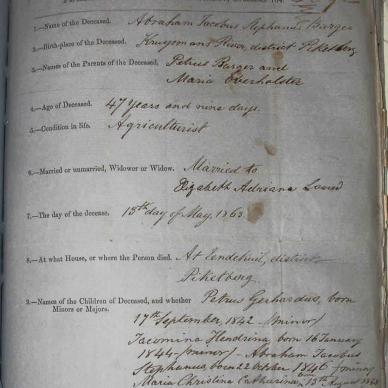 1.—Name of the Deceased. Abraham Jacobus Stephanus Burger
2.—Birth-place of the Deceased. Kruysmans River, district Piketberg
3.—Names of the Parents of the Deceased. Petrus Burger and
Maria Everholdtz
4.—Age of Deceased. 47 Years and nine days.
5.—Condition in life. Agriculturist
6.—Married or unmarried, Widower or Widow. Married to
Elizabeth Adriana
7.—The day of the decease. 13th day of May, 1863
8.—At what House, or where the Person died. At district
Piketberg
9.—Names of the Children of Deceased, and whether Petrus Gerhardus, born
Minors or Majors.
17th September, 1842 (minor)
Jacomina Hendrina, born 16 January
1844 (minor) – Abraham Jacobus
Stephanus, born 22 October 1846 (minor)
Maria Christina Catharina, 13th August